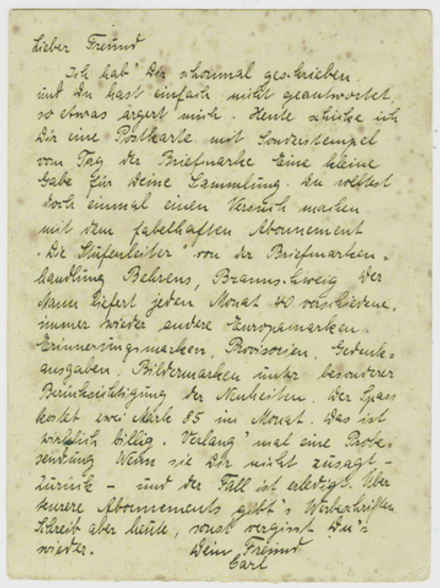 Lieber Freund
Ich hab' Dir schonmal geschrieben
und Du hast einfach nicht geantwortet,
so etwas ärgert mich. Heute schicke ich
Dir eine Postkarte mit Sonderstempel
vom Tag der Briefmarke Eine kleine
Gabe für Deine Sammlung. Du solltest
doch einmal einen Versuch machen
mit dem fabelhaften Abonnement
"Die Stufenleiter" von der Briefmarken-
handlung Behrens, Braunschweig Der
Mann liefert jeden Monat 40 verschiedene,
immer wieder andere Europamarken.
Erinnerungsmarken, Provisorien, Gedenk-
ausgaben, Bildermarken unter besonderer
Berücksichtigung der Neuheiten. Der Spass
kostet zwei Mark 85 im Monat. Das ist
wirklich billig. Verlang' mal eine Probe-
sendung Wenn sie Dir nicht zusagt -
zurück - und der Fall ist erledigt. Über
teurere Abonnements gibt's Werbeschriften.
Schreib aber heute, sonst vergisst Du's
wieder. Dein Freund
Carl